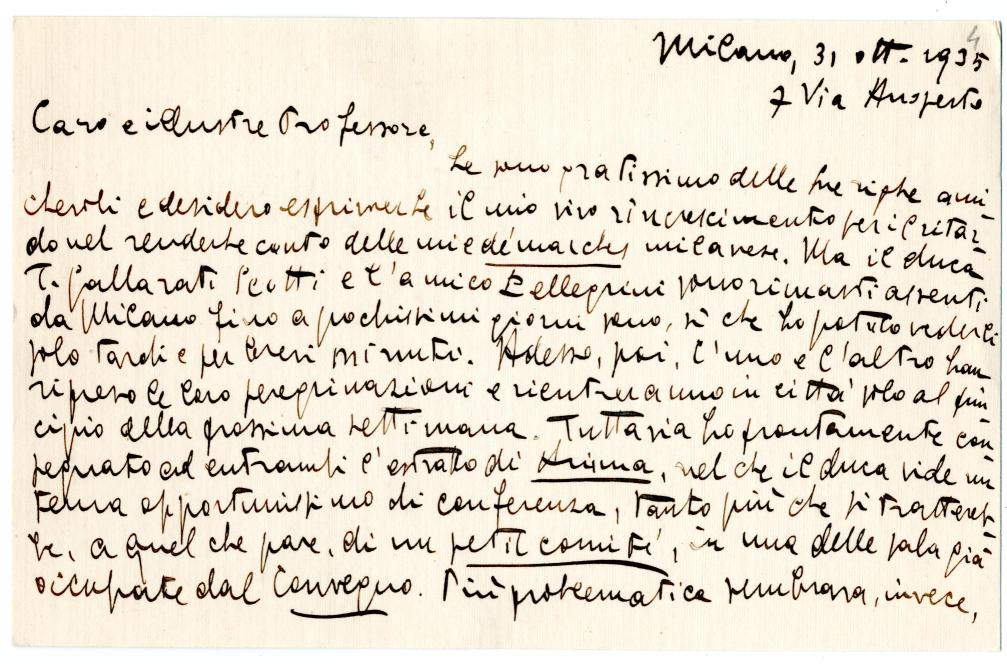 4
Milano, 31 ott. 1935
7 Via Ansperto
Caro e illustre Professore,
Le sono gratissimo delle Sue righe ami
chevoli e desidero esprimerLe il mio vivo rincrescimento per il ritar
do nel renderLe conto delle mie démarches milanese. Ma il duca
T. Gallarati Scotti e l'amico Pellegrini sono rimasti assenti
da Milano fino a pochissimi giorni sono, sì che ho potuto vederli
solo tardi e per brevi minuti. Adesso, poi, l'uno e l'altro han
ripreso le loro peregrinazioni e rientreranno in città solo al prin
cipio della prossima settimana. Tuttavia ho prontamente con
segnato ad entrambi l'estratto di, nel che il duca vide un
tema opportunissimo di conferenza, tanto più che si trattereb
be, a quel che pare, di un petit comité, in una delle sala già
occupate dal Convegno. Più problematica sembrava, invece,